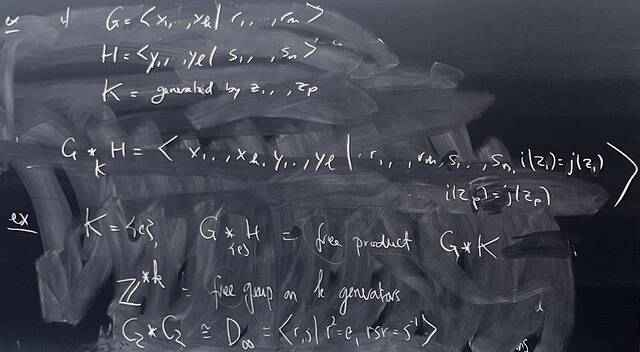 ex if G = < x₁, .., x_k | r₁, .., r_m >
H = < y₁, .., y_l | s₁, .., s_n >
K = generated by z₁, .., z_p
G *_K H = < x₁, .., x_k, y₁, .., y_l | r₁, .., r_m, s₁, .., s_n, i(z₁) = j(z₁)
... i(z_p) = j(z_p) >
ex K = {e}, G *_{e} H = free product G * K
ℤ^{*k} = free group on k generators
C₂ * C₂ ≅ D_∞ = < r, s | r² = e, rsr = s⁻¹ >